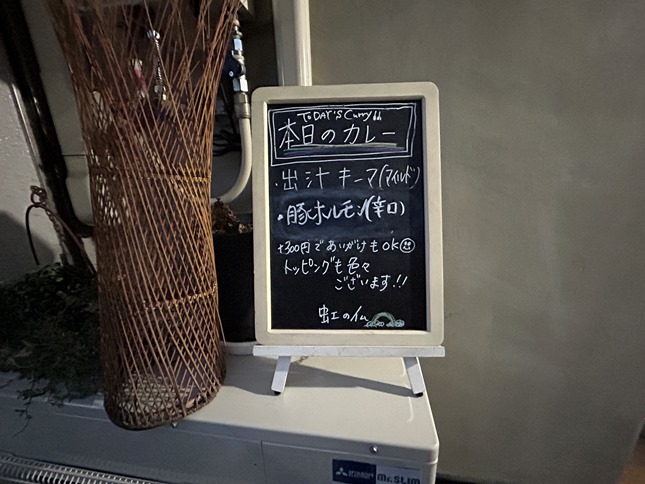 TODAY'S Curry
本日のカレー
・出汁キーマ(マイルド)
・豚ホルモン(辛口)
+300円であいがけもOK
トッピングも色々
ございます!!
虹の仏
MITSUBISHI
Mr.SLIM